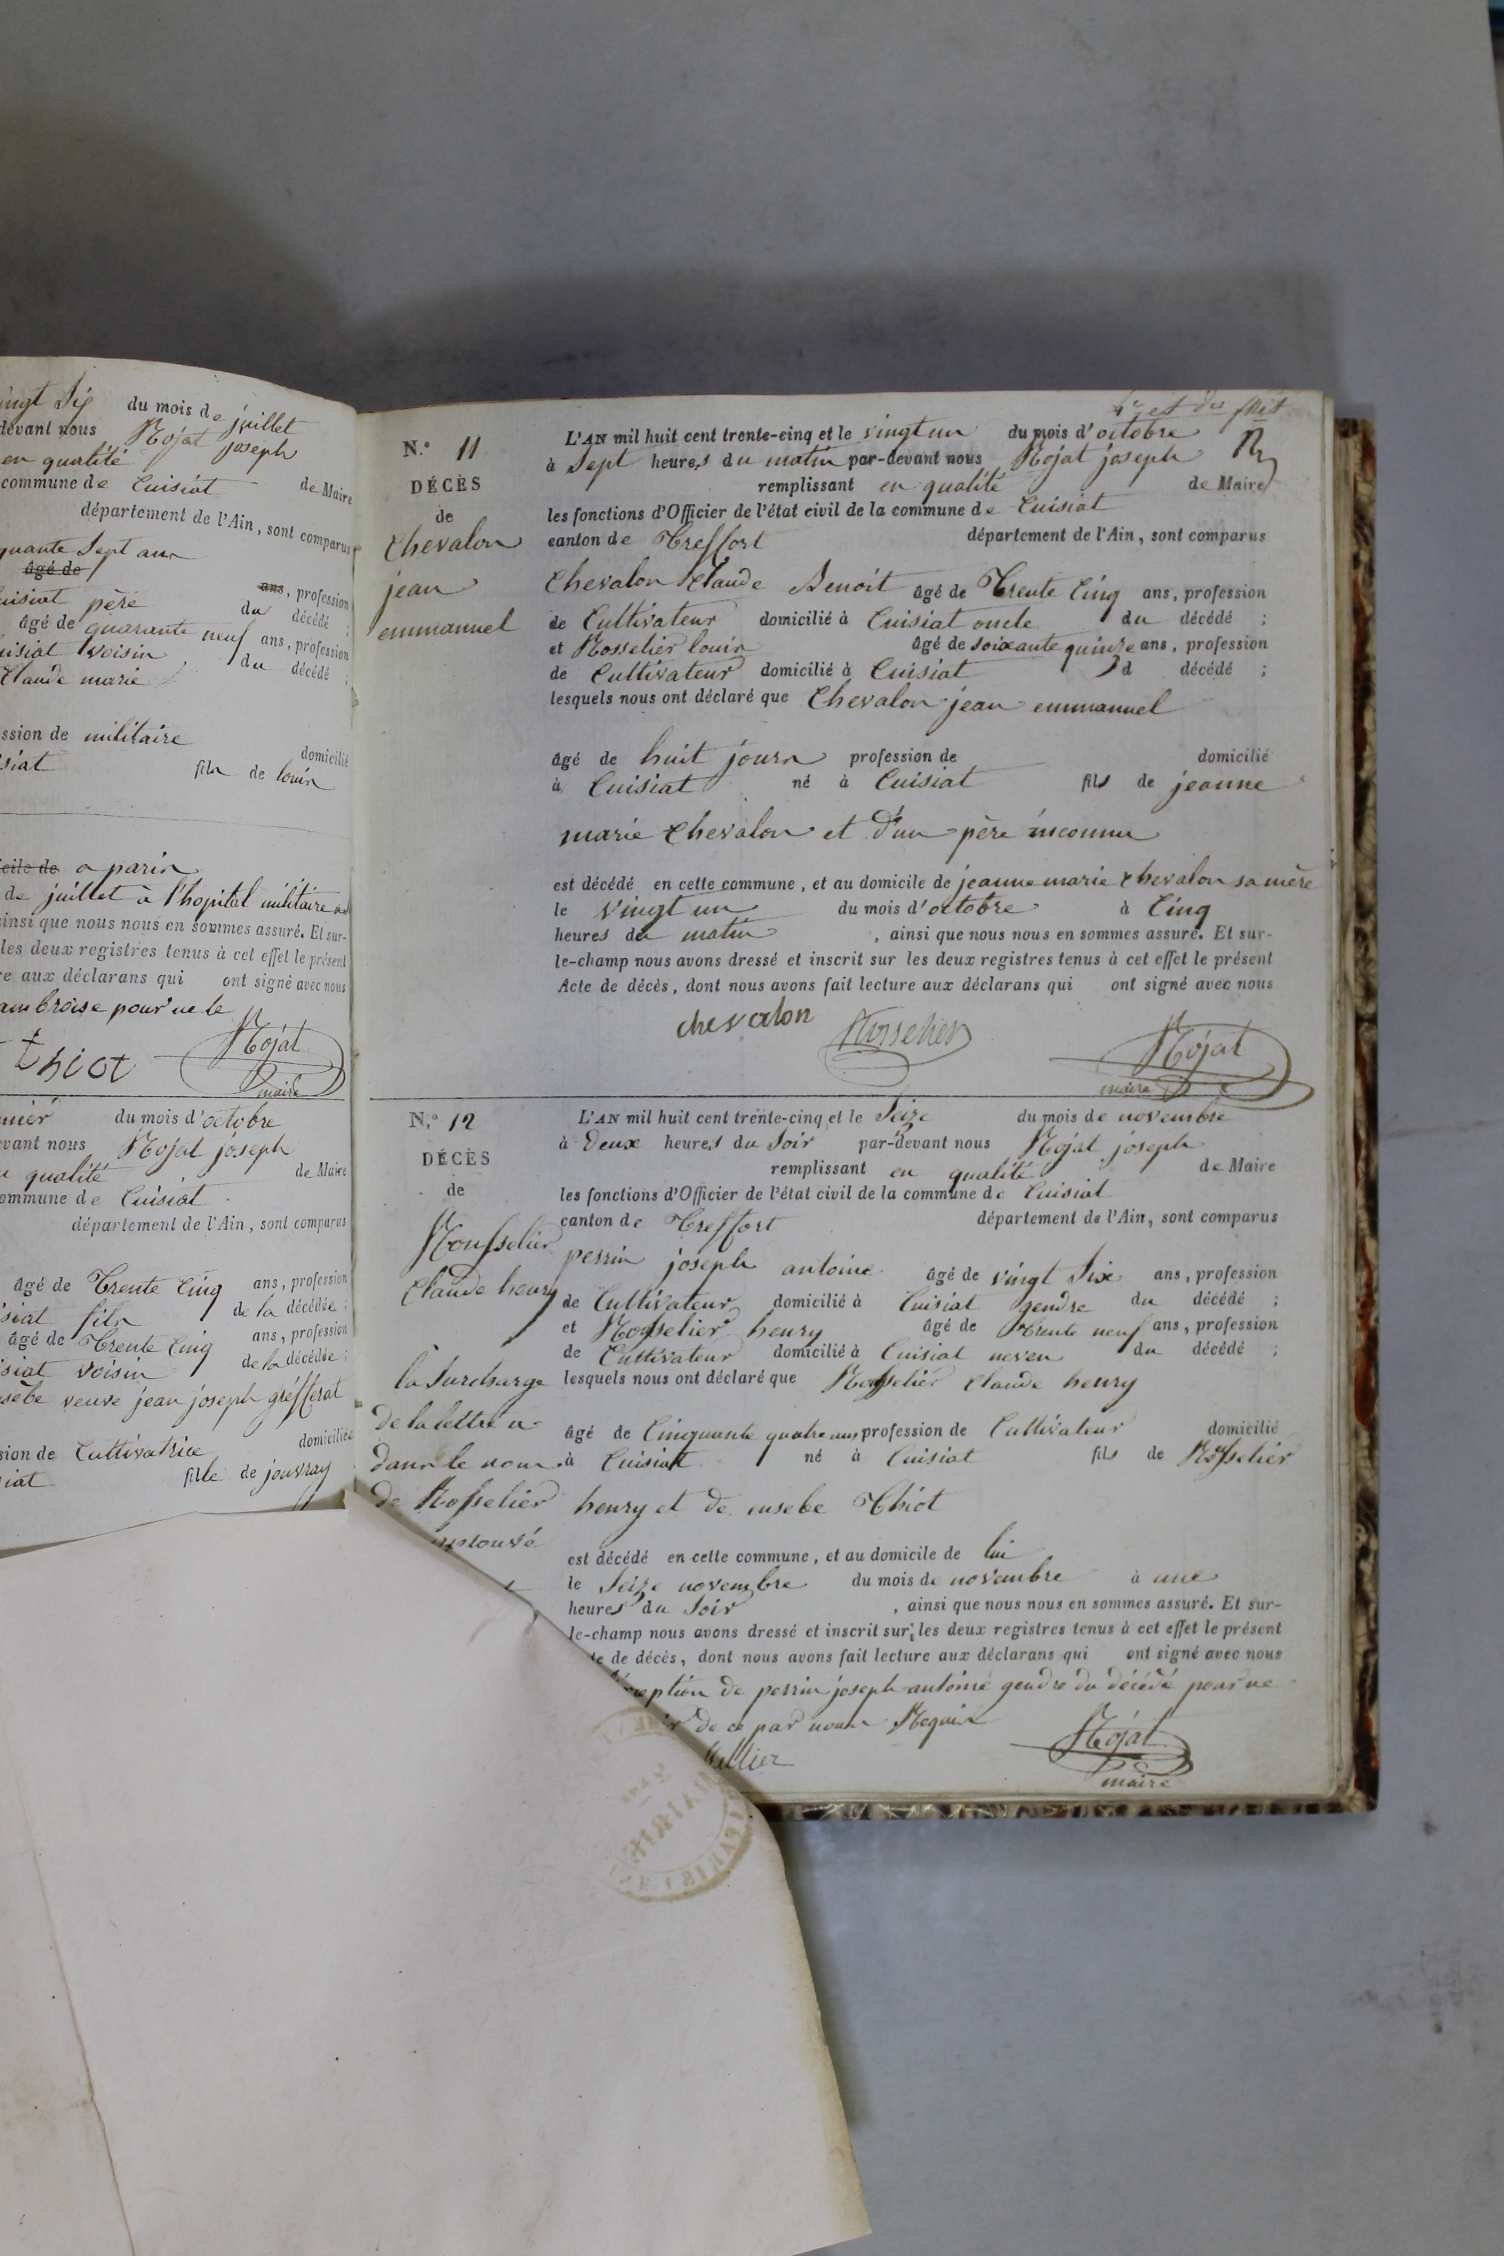 vingt Six du mois de juillet
devant nous Mojat joseph
en qualité de Maire
commune de Cuisiat
département de l'Ain, sont comparus
quante Sept ans
âgé de ans, profession
Cuisiat père du décédé ;
âgé de quarante neuf ans, profession
Cuisiat voisin du décédé ;
Claude marie
ssion de militaire domicilié
siat fils de louis
icile de a paris
de juillet à l'hopital militaire
ainsi que nous nous en sommes assuré. Et sur-
les deux registres tenus à cet effet le présent
re aux déclarans qui ont signé avec nous
ambroise pour ne le
thiot Mojat
maire
mier du mois d'octobre
evant nous Mojat joseph
n qualité de Maire
ommune de Cuisiat
département de l'Ain, sont comparus
âgé de Trente Cinq ans, profession
isiat fils de la décédée ;
âgé de Trente Cinq ans, profession
isiat voisin de la décédée ;
sebe veuve jean joseph grefferat
sion de Cultivatrice domiciliée
siat fille de jouvray
N.º 11
DÉCÈS
de
Chevalon
jean
emmanuel
L'AN mil huit cent trente-cinq et le vingt un du mois d'octobre
à Sept heures du matin par-devant nous Mojat joseph
remplissant en qualité de Maire
les fonctions d'Officier de l'état civil de la commune de Cuisiat
canton de Treffort département de l'Ain, sont comparus
Chevalon Claude Benoit âgé de Trente Cinq ans, profession
de Cultivateur domicilié à Cuisiat oncle du décédé ;
et Rosselier louis âgé de soixante quinze ans, profession
de Cultivateur domicilié à Cuisiat d décédé ;
lesquels nous ont déclaré que Chevalon jean emmanuel
âgé de huit jours profession de domicilié
à Cuisiat né à Cuisiat fils de jeanne
marie Chevalon et d'un père inconnu
est décédé en cette commune, et au domicile de jeanne marie Chevalon sa mère
le vingt un du mois d'octobre à Cinq
heures du matin , ainsi que nous nous en sommes assuré. Et sur-
le-champ nous avons dressé et inscrit sur les deux registres tenus à cet effet le présent
Acte de décès, dont nous avons fait lecture aux déclarans qui ont signé avec nous
chevalon Rosselier Mojat
maire
N.º 12
DÉCÈS
de
Rousselier
Claude henry
la Surcharge
de la lettre u
dans le nom
de Rosselier
approuvé
L'AN mil huit cent trente-cinq et le Seize du mois de novembre
à Deux heures du Soir par-devant nous Mojat joseph
remplissant en qualité de Maire
les fonctions d'Officier de l'état civil de la commune de Cuisiat
canton de Treffort département de l'Ain, sont comparus
perrin joseph antoine âgé de vingt Six ans, profession
de Cultivateur domicilié à Cuisiat gendre du décédé ;
et Rosselier henry âgé de Trente neuf ans, profession
de Cultivateur domicilié à Cuisiat neveu du décédé ;
lesquels nous ont déclaré que Rosselier Claude henry
âgé de Cinquante quatre ans profession de Cultivateur domicilié
à Cuisiat né à Cuisiat fils de Rosselier
henry et de eusebe Thiot
est décédé en cette commune, et au domicile de lui
le Seize novembre du mois de novembre à une
heures du Soir , ainsi que nous nous en sommes assuré. Et sur-
le-champ nous avons dressé et inscrit sur les deux registres tenus à cet effet le présent
te de décès, dont nous avons fait lecture aux déclarans qui ont signé avec nous
ception de perrin joseph antoine gendre du décédé pour ne
de ce par nous Requis
Mojat
maire